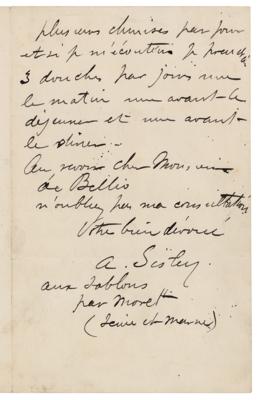 plusieurs chemises par jour
et si je m'écoutais je prendrais
3 douches par jours une
le matin une avant le
déjeuner et une avant
le diner.
Au revoir cher Monsieur
de Bellio
n'oubliez pas ma consultation
Votre bien dévoué
A. Sisley
aux Sablons
par Moret
(Seine et Marne)